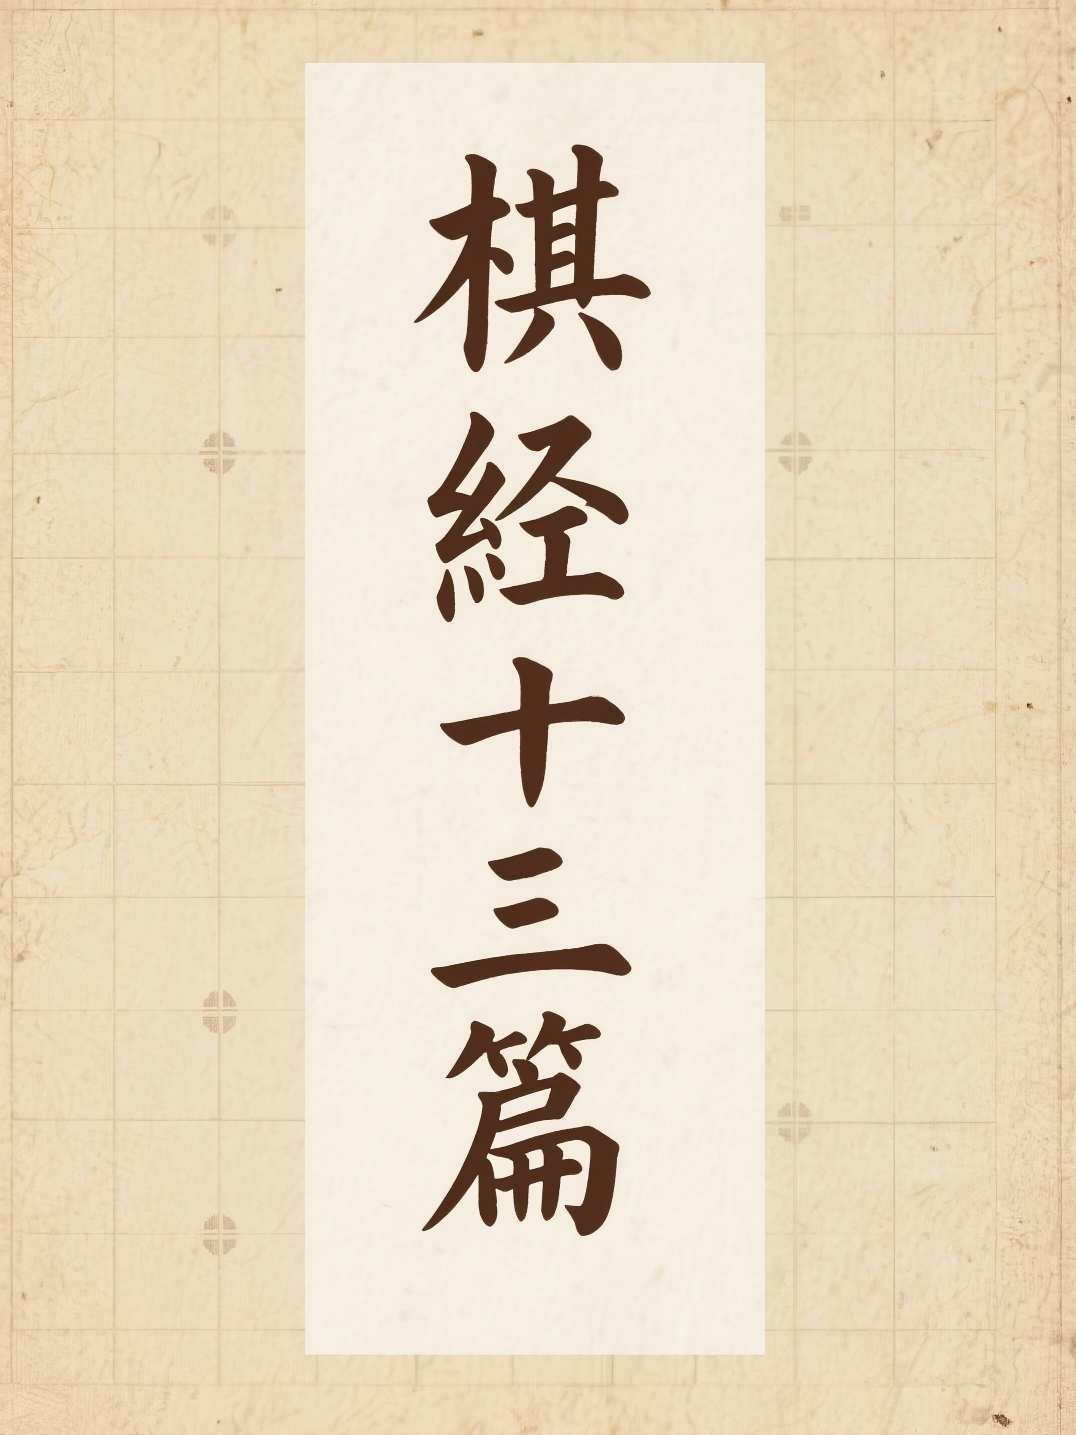 棋経十三篇